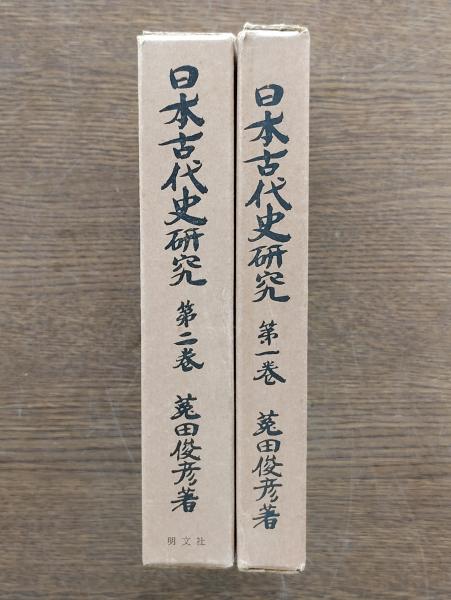 日本古代史研究 第一巻 菟田俊彦著
日本古代史研究 第二巻 菟田俊彦著
明文社